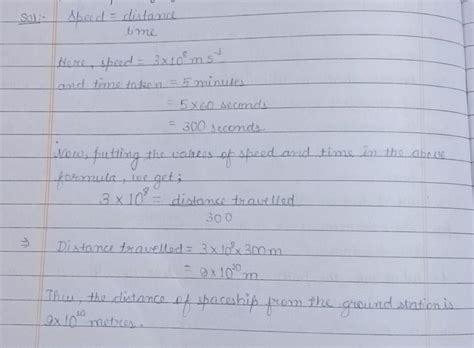 Sol:- Speed = distance
time
Here, speed = 3×10⁸ms⁻¹
and time taken = 5 minutes
= 5×60 seconds
= 300 seconds
Now, putting the values of speed and time in the above
formula, we get;
3 × 10⁸ = distance travelled
300
⇒ Distance travelled = 3×10⁸×300m
= 9×10¹⁰ m
Thus, the distance of spaceship from the ground station is
9×10¹⁰ metres.